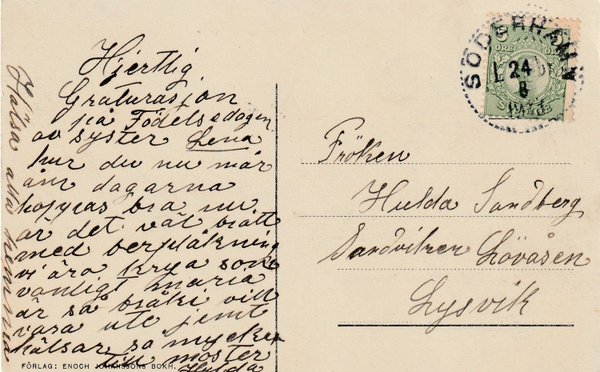 Hjertlig
Graturasjon
på Födelsedagen
av syster Lena
hur du nu mår
än dagarna
hoppas bra nu
är det väl brått
med berplåkning
vi ära krya som
vanligt maria
är så bråki vill
vara ute jemt
hälsar så mycket
till moster
Hulda
Hälsa alla hemma
SÖDERHAMN
24
8
ÖRE
Fröken
Hulda Sandberg
Sandviken Lövåsen
Lysvik
FÖRLAG: ENOCH JOHANSSONS BOKH.